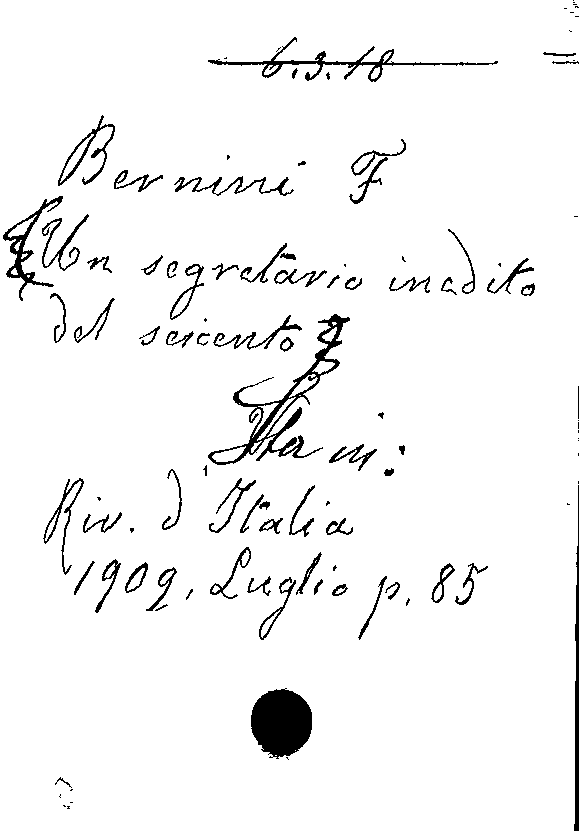 6.3.18
Bernini F
Un segretario inedito
del seicento
Sta in:
Riv. d'Italia
1909, Luglio p. 85